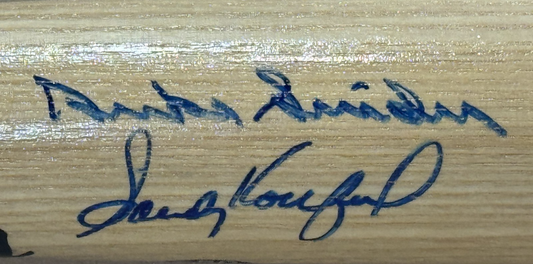 Duke Snider
Sandy Koufax